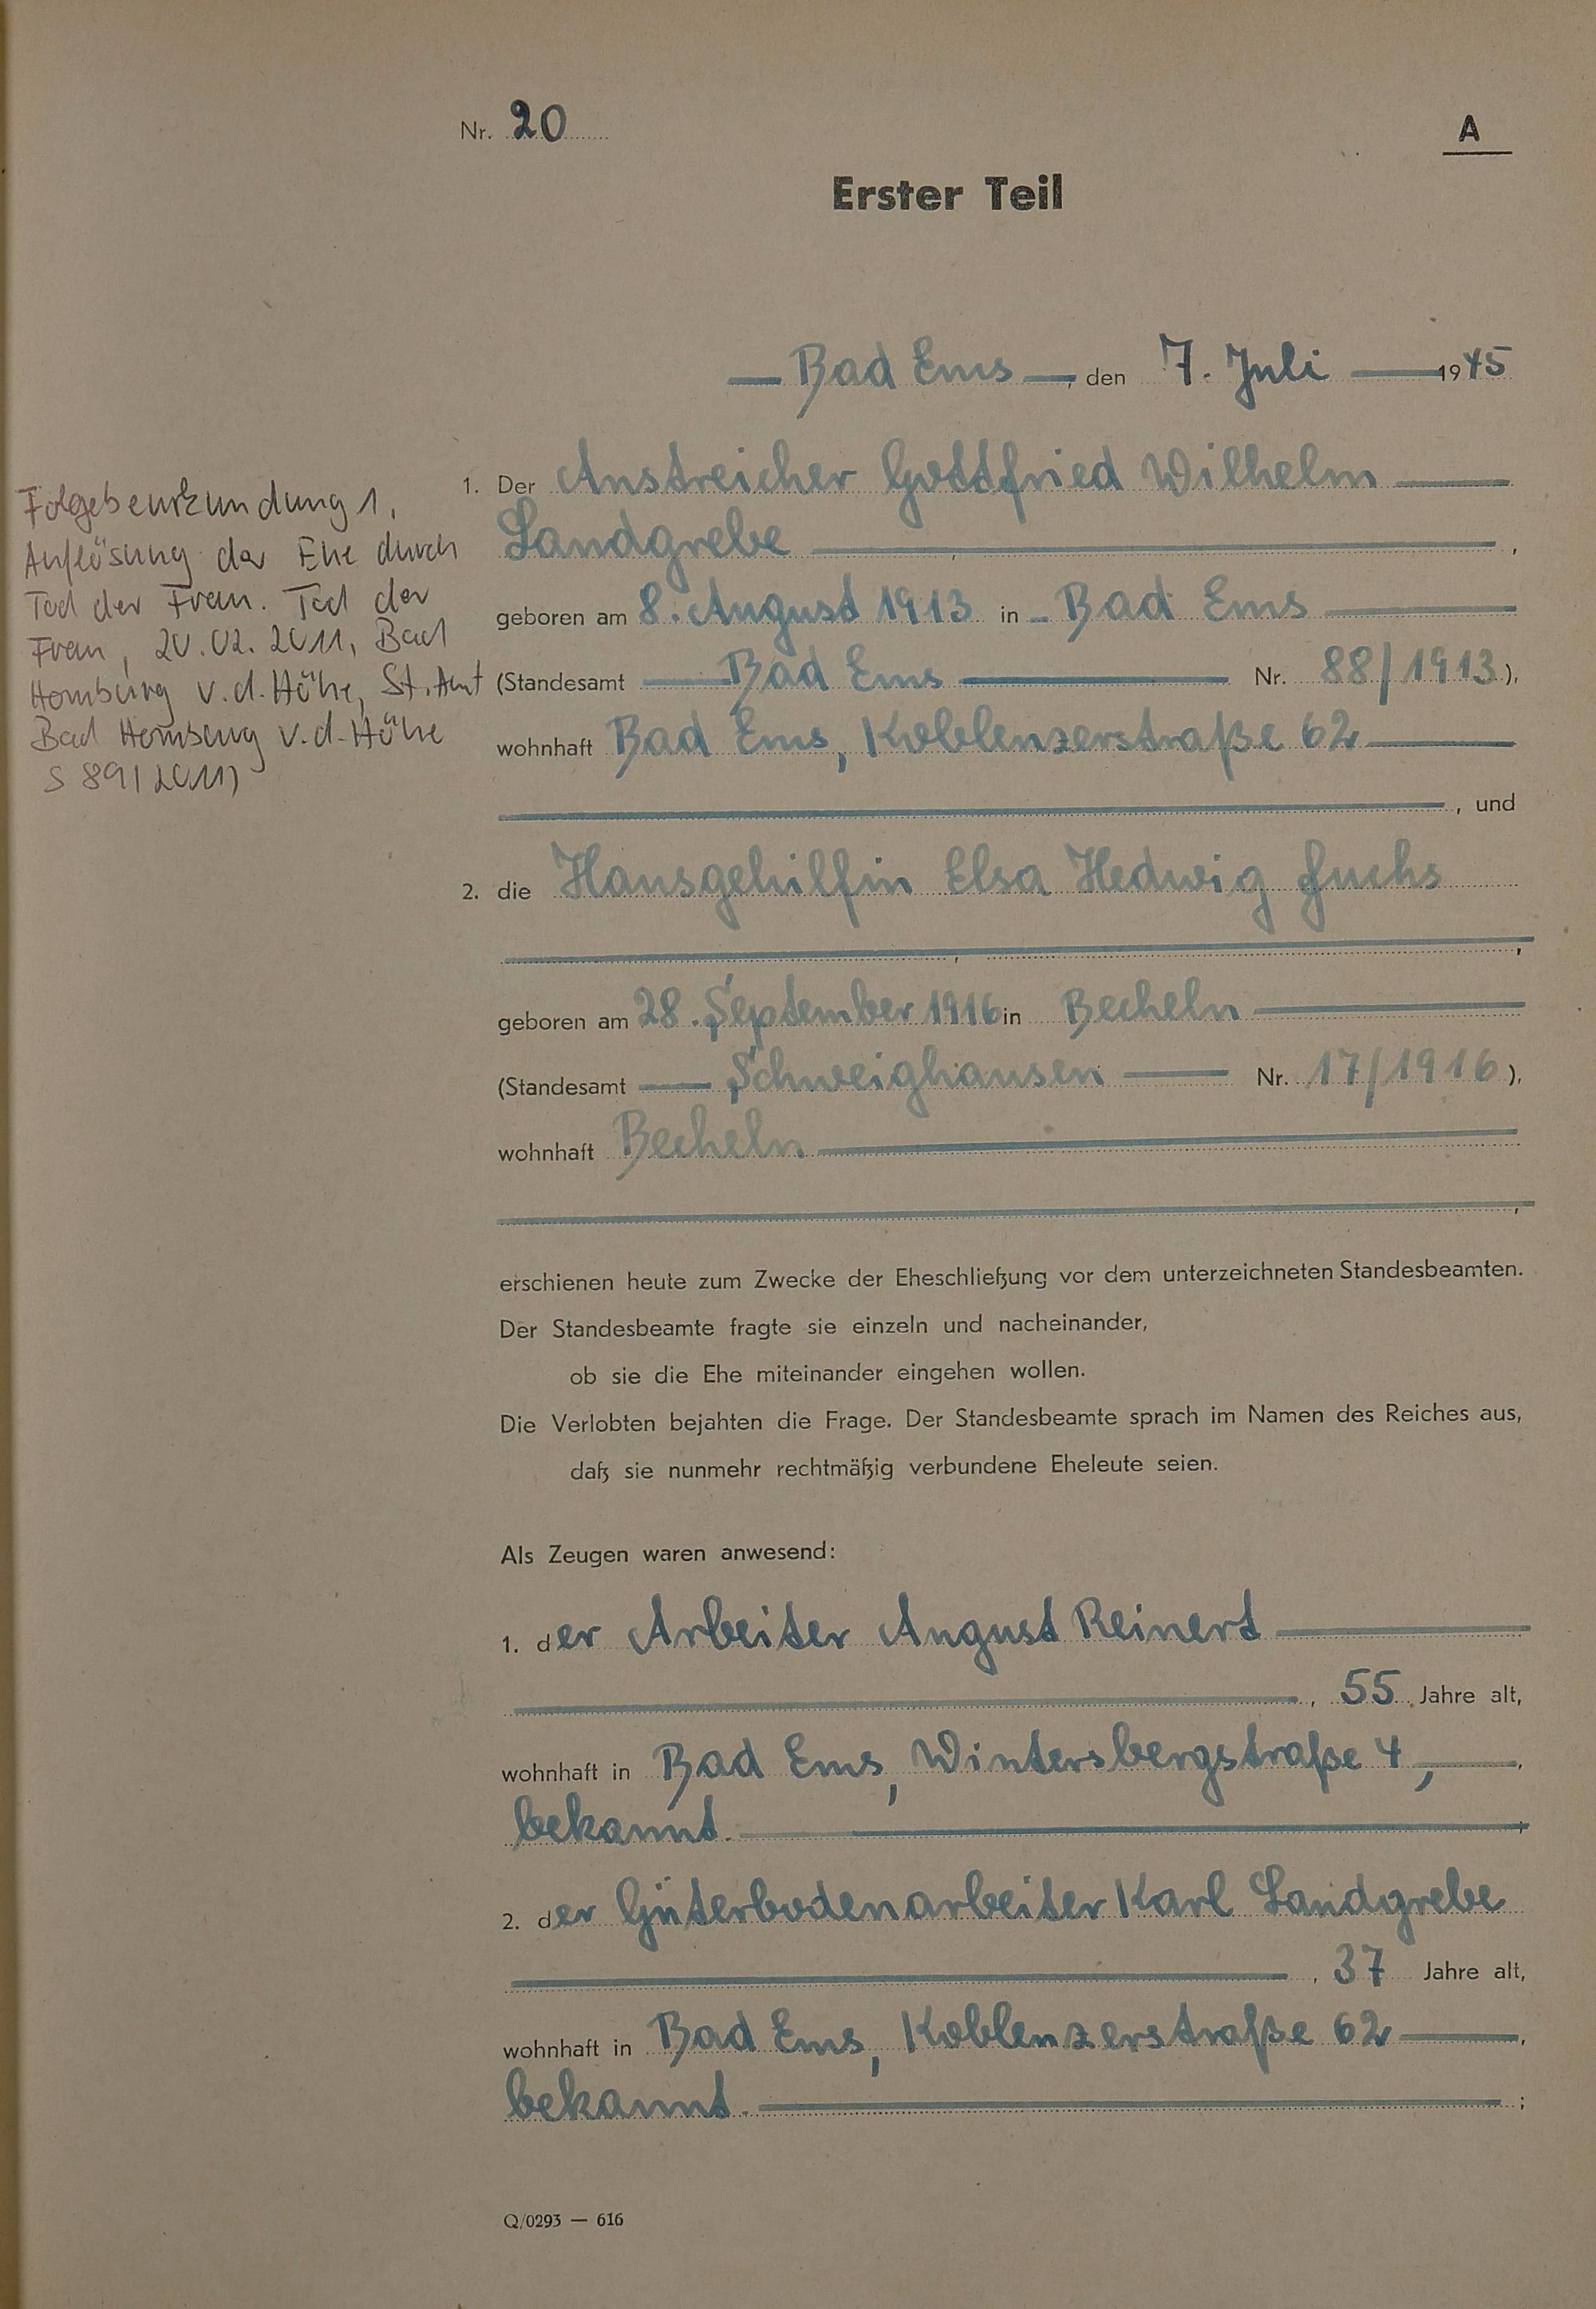 Nr. 20
A
Erster Teil
Bad Ems, den 7. Juli 1945
1. Der Anstreicher Gottfried Wilhelm
Landgrebe,
geboren am 8. August 1913 in Bad Ems
(Standesamt Bad Ems Nr. 88/1913),
wohnhaft Bad Ems, Koblenzerstraße 62
, und
2. die Hausgehilfin Elsa Hedwig Fuchs
,
geboren am 28. September 1916 in Becheln
(Standesamt Schweighausen Nr. 17/1916),
wohnhaft Becheln
,
erschienen heute zum Zwecke der Eheschließung vor dem unterzeichneten Standesbeamten.
Der Standesbeamte fragte sie einzeln und nacheinander,
ob sie die Ehe miteinander eingehen wollen.
Die Verlobten bejahten die Frage. Der Standesbeamte sprach im Namen des Reiches aus,
daß sie nunmehr rechtmäßig verbundene Eheleute seien.
Als Zeugen waren anwesend:
1. der Arbeiter August Reinert
, 55 Jahre alt,
wohnhaft in Bad Ems, Wintersbergstraße 4,
bekannt.
2. der Güterbodenarbeiter Karl Landgrebe
, 37 Jahre alt,
wohnhaft in Bad Ems, Koblenzerstraße 62,
bekannt. ;
Q/0293 — 616
Folgebeurkundung 1,
Auflösung der Ehe durch
Tod der Frau. Tod der
Frau, 20.02.2011, Bad
Homburg v.d.Höhe, St.Amt
Bad Homburg v.d.Höhe
S 89/2011)